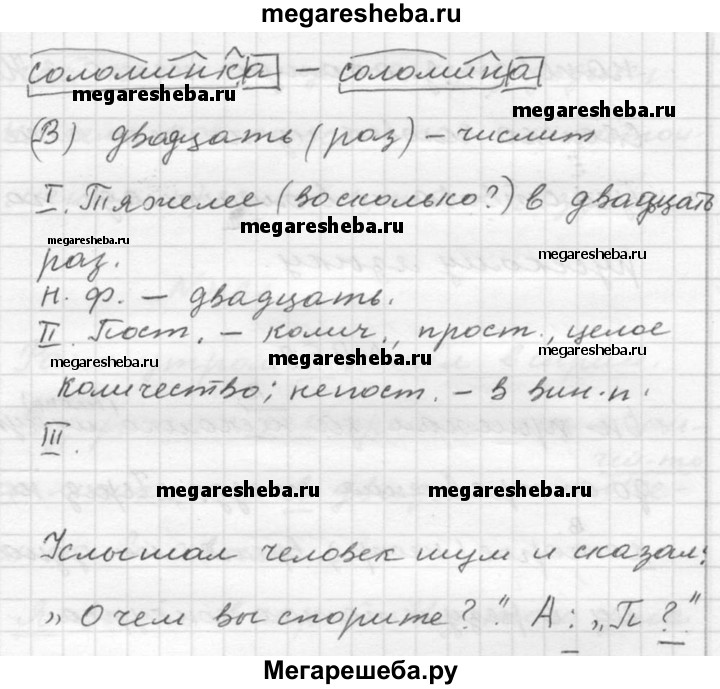 megaresheba.ru
соломинка – соломина
megaresheba.ru
megaresheba.ru
(В) двадцать (раз) – числит
I. Тяжелее (во сколько?) в двадцать
megaresheba.ru
megaresheba.ru
раз.
н. ф. – двадцать.
II. Пост. – колич., прост., целое
megaresheba.ru
megaresheba.ru
megaresheba.ru
количество; непост. – в вин. п.
III.
megaresheba.ru
megaresheba.ru
Услышал человек шум и сказал:
„О чем вы спорите?". А: „П?"
Мегарешеба.ру